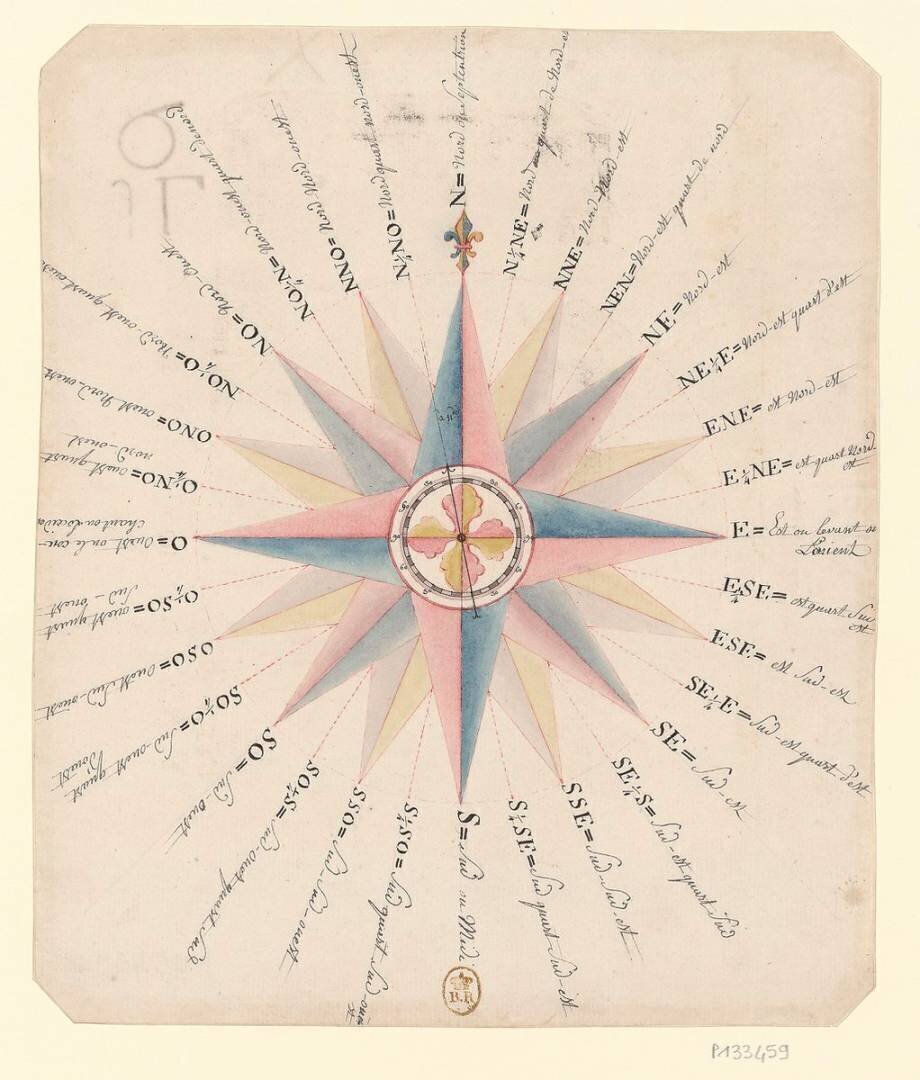 N= Nord ou Septentrion
N¼NE= Nord quart de Nord-es
NNE= Nord-Nord-est
NEN= Nord-est quart de nord
NE= Nord-est
NE¼E= Nord-est quart d'est
ENE= est Nord-est
E¼NE= est quart Nord
est
E= Est ou levant ou
L'orient
E¼SE= est quart Sud
est
ESE= est Sud-est
SE¼E= Sud-est-quart d'est
SE= Sud-est
SE¼S= Sud-est quart Sud
SSE= Sud-Sud-est
S¼SE= Sud quart Sud-est
S= Sud ou Midi
S¼SO= Sud quart Sud-oue
st
SSO= Sud-Sud-ouest
SO¼S= Sud-ouest quart Sud
SO= Sud-Ouest
SO¼O= Sud-ouest quart
d'ouest
OSO= Ouest Sud-ouest
O¼SO= ouest quart
Sud-ouest
O= Ouest ou le cou-
chant ou L'occiden
O¼NO= ouest quart
nord-ouest
ONO= ouest Nord-ouest
NO¼O= Nord-ouest quart ouest
NO= Nord-Ouest
NO¼N= Nord-ouest quart de nord
NNO= Nord Nord-ouest
N¼NO= Nord quart nord-ouest
B.R
P.133459